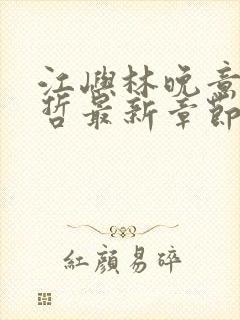 江嶼林晚意
哲最新章節
紅顏易碎